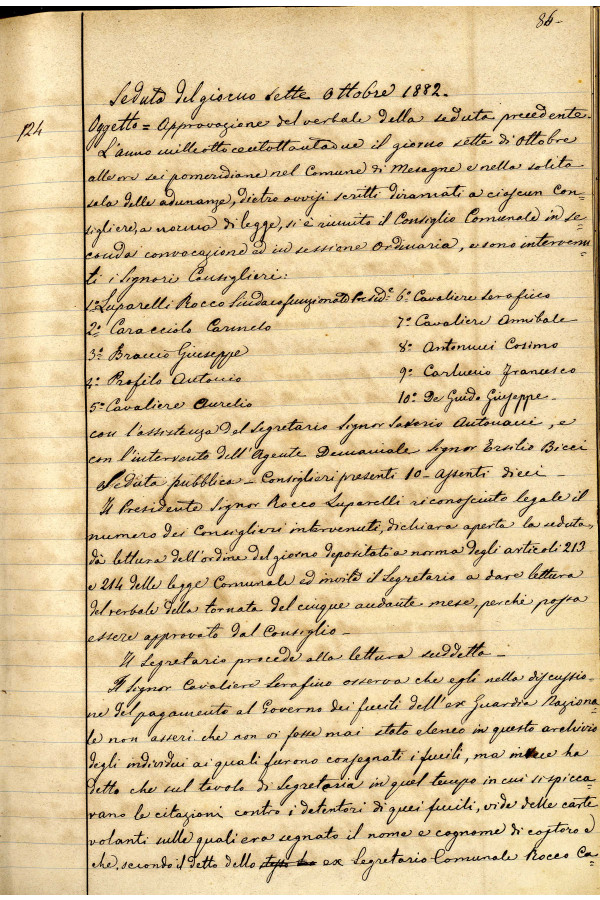 86-
Seduta del giorno sette Ottobre 1882.
124
Oggetto = Approvazione del verbale della seduta precedente.
L'anno milleottocentottantadue il giorno sette di Ottobre
alle ore sei pomeridiane nel Comune di Mesagne e nella solita
sala delle adunanze, dietro avvisi scritti diramati a ciascun Con=
sigliere, a norma di legge, si è riunito il Consiglio Comunale in se=
conda convocazione ed in sessione Ordinaria, e sono intervenu=
ti i Signori Consiglieri:
1º Luparelli Rocco Sindaco funzionante Presid.e 6º Cavaliere Serafino
2º Caracciolo Carmelo 7º Cavaliere Annibale
3º Braccio Giuseppe 8º Antonucci Cosimo
4º Profilo Antonio 9º Carluccio Francesco
5º Cavaliere Aurelio 10º De Guido Giuseppe-
con l'assistenza del Segretario Signor Saverio Antonucci, e
con l'intervento dell'Agente Demaniale Signor Ersilio Bicci
Seduta pubblica - Consiglieri presenti 10 - Assenti dieci -
Il Presidente Signor Rocco Luparelli riconosciuto legale il
numero dei Consiglieri intervenuti, dichiara aperta la seduta,
dà lettura dell'ordine del giorno depositato a norma degli articoli 213
e 214 della legge Comunale ed invita il Segretario a dare lettura
del verbale della tornata del cinque andante mese, perchè possa
essere approvato dal Consiglio -
Il Segretario procede alla lettura suddetta -
Il Signor Cavaliere Serafino osserva che egli nella discussio=
ne del pagamento al Governo dei fucili dell'ex Guardia Naziona=
le non asserì che non vi fosse mai stato elenco in questo archivio
degli individui ai quali furono consegnati i fucili, ma invece ha
detto che sul tavolo di Segretaria in quel tempo in cui si spicca=
vano le citazioni contro i detentori di quei fucili, vide delle carte
volanti sulle quali era segnato il nome e cognome di costoro e
che, secondo il detto dello ex Segretario Comunale Rocco Ca=